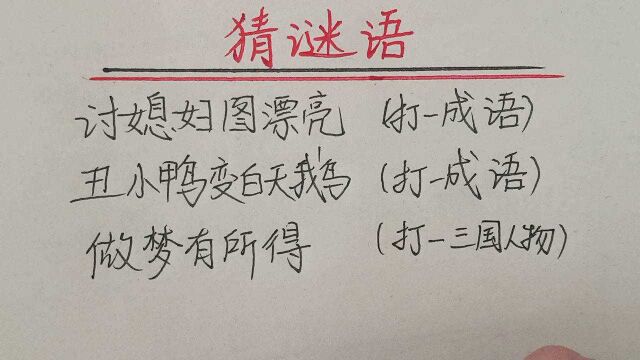 猜谜语
讨媳妇图漂亮 (打一成语)
丑小鸭变白天鹅 (打一成语)
做梦有所得 (打一三国人物)